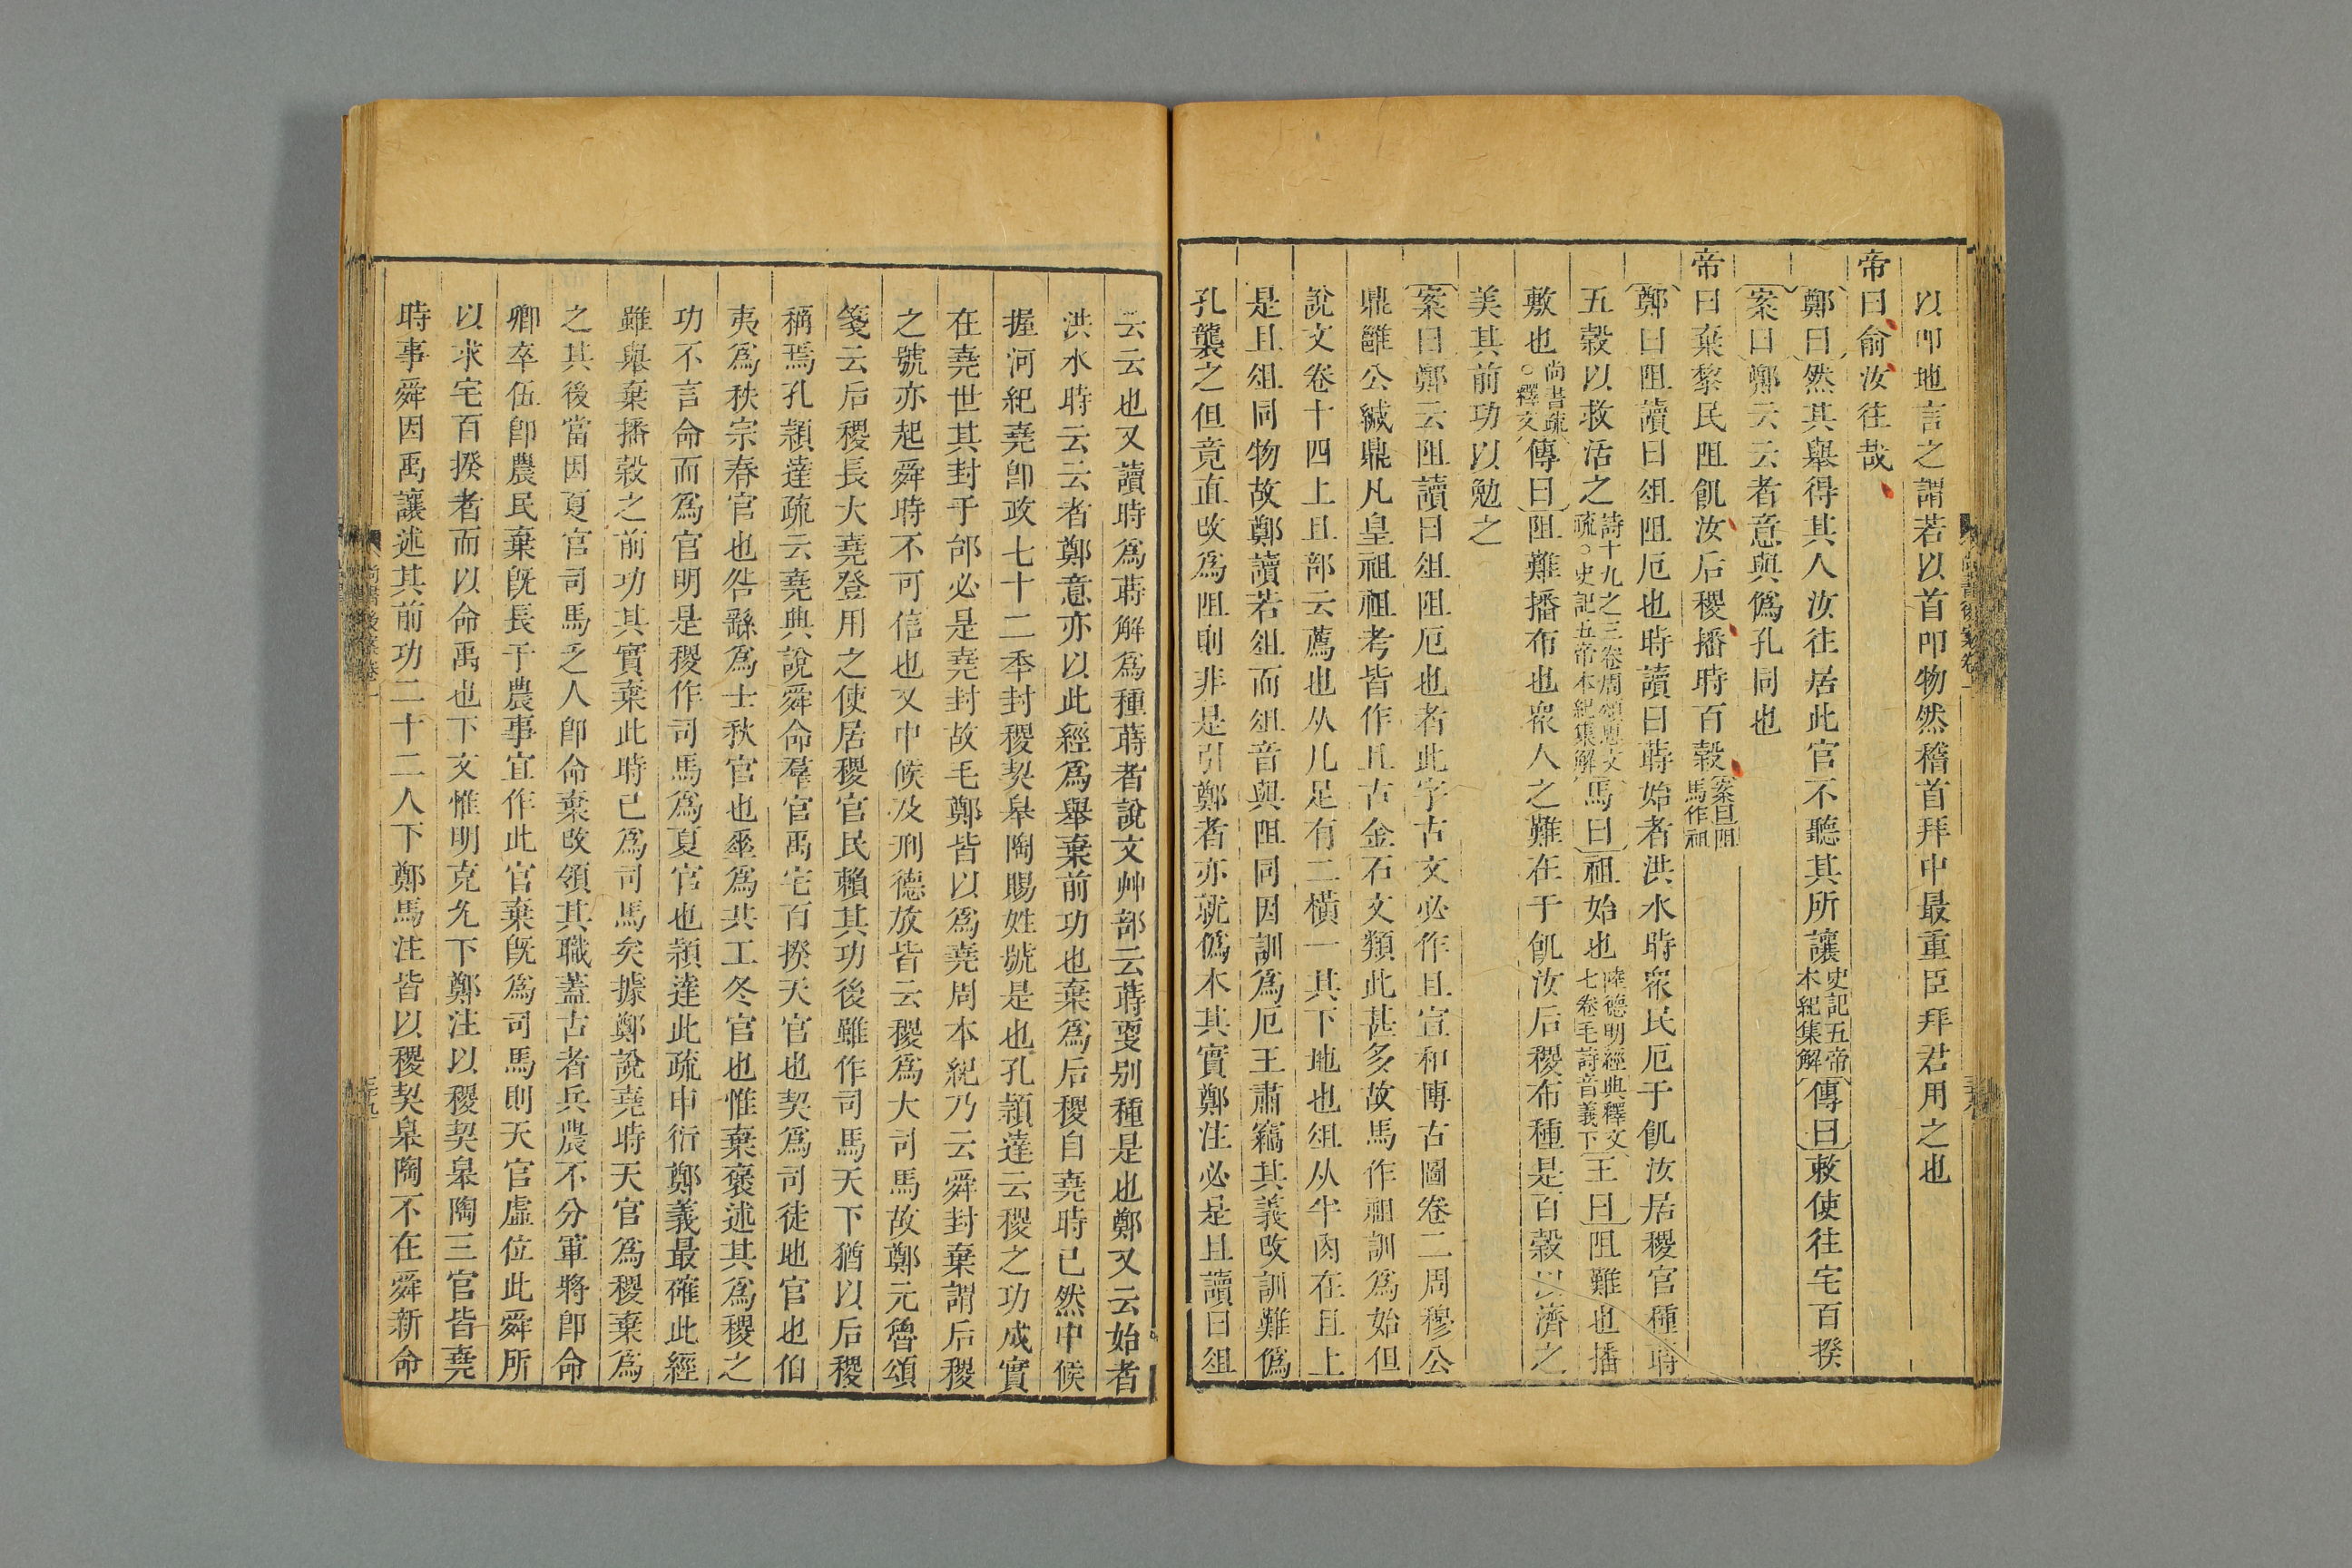 以叩地言之謂若以首叩物然稽首拜中最重臣拜君用之也
帝曰俞汝往哉
鄭曰然其舉得其人汝往居此官不聽其所讓史記五帝本紀集解傳曰敕使往宅百揆
案曰鄭云云者意與僞孔同也
帝曰棄黎民阻飢汝后稷播時百穀案曰阻馬作祖
鄭曰阻讀曰俎阻厄也時讀曰蒔始者洪水時衆民厄于飢汝居稷官種蒔
五穀以救活之詩十九之三卷周頌思文疏○史記五帝本紀集解馬曰祖始也陸德明經典釋文七卷毛詩音義下王曰阻難也播
敷也尚書疏○釋文傳曰阻難播布也衆人之難在于飢汝后稷布種是百穀以濟之
美其前功以勉之
案曰鄭云阻讀曰俎阻厄也者此字古文必作且宣和博古圖卷二周穆公
鼎雝公緘鼎凡皇祖祖考皆作且古金石文類此甚多故馬作祖訓爲始但
說文卷十四上且部云薦也从几足有二橫一其下地也俎从半肉在且上
是且俎同物故鄭讀若俎而俎音與阻同因訓爲厄王肅竊其義改訓難僞
孔襲之但竟直改爲阻則非是引鄭者亦就僞本其實鄭注必是且讀曰俎
云云也又讀時爲蒔解爲種蒔者說文艸部云蒔㪅别種是也鄭又云始者
洪水時云云者鄭意亦以此經爲舉棄前功也棄爲后稷自堯時已然中候
握河紀堯卽政七十二年封稷契皋陶賜姓號是也孔穎達云稷之功成實
在堯世其封于邰必是堯封故毛鄭皆以爲堯周本紀乃云舜封棄謂后稷
之號亦起舜時不可信也又中候及刑德放皆云稷爲大司馬故鄭元魯頌
箋云后稷長大堯登用之使居稷官民賴其功後雖作司馬天下猶以后稷
稱焉孔穎達疏云堯典說舜命羣官禹宅百揆天官也契爲司徒地官也伯
夷爲秩宗春官也咎繇爲士秋官也垂爲共工冬官也惟棄褒述其爲稷之
功不言命而爲官明是稷作司馬爲夏官也穎達此疏申衍鄭義最確此經
雖舉棄播穀之前功其實棄此時已爲司馬矣據鄭說堯時天官爲稷棄爲
之其後當因夏官司馬乏人卽命棄改領其職蓋古者兵農不分軍將卽命
卿卒伍卽農民棄旣長于農事宜作此官棄旣爲司馬則天官虛位此舜所
以求宅百揆者而以命禹也下文惟明克允下鄭注以稷契皋陶三官皆堯
時事舜因禹讓述其前功二十二人下鄭馬注皆以稷契皋陶不在舜新命